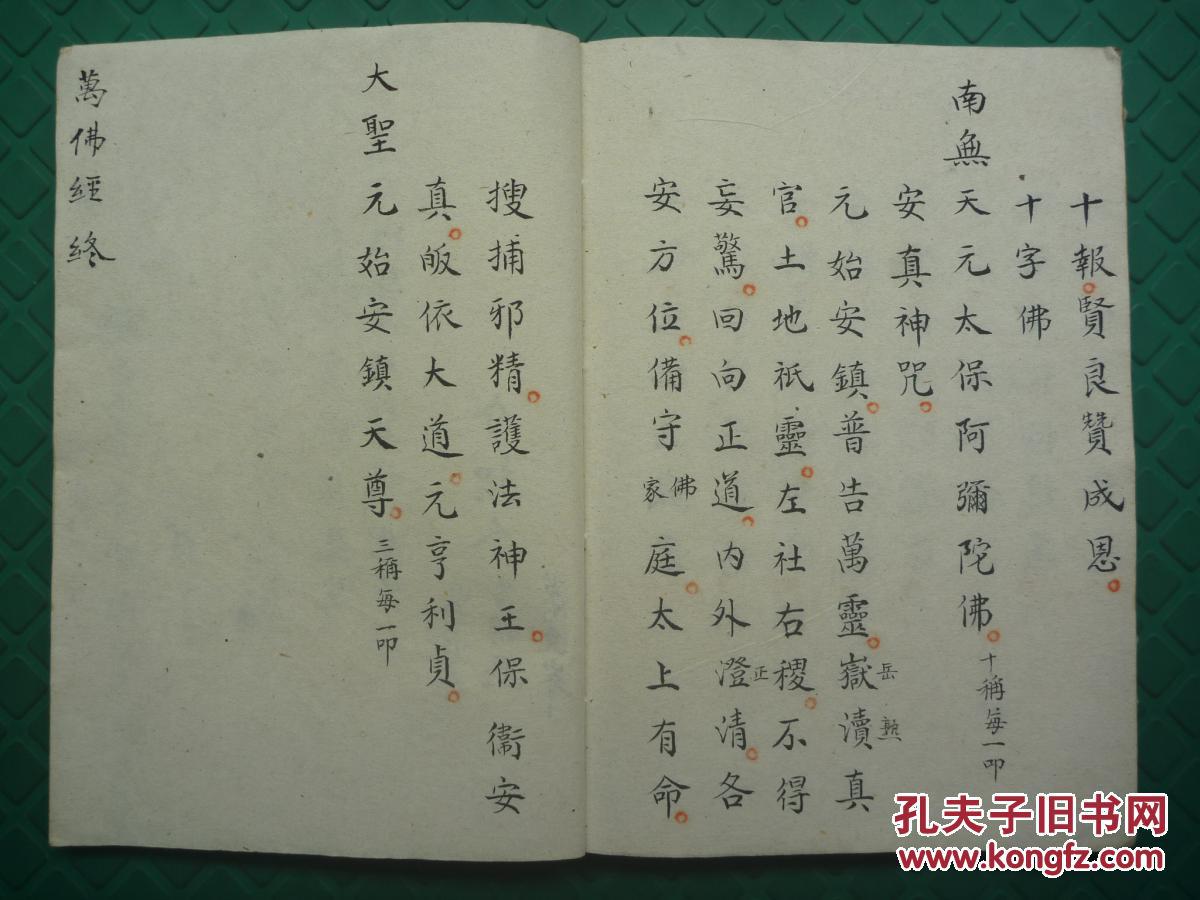 十報賢良贊成恩
十字佛
南無天元太保阿彌陀佛十稱每一叩
安真神咒
元始安鎮普告萬靈嶽岳瀆熟真
官土地祇靈左社右稷不得
妄驚回向正道內外澄正清各
安方位備守佛家庭太上有命
搜捕邪精護法神王保衛安
真皈依大道元亨利貞
大聖元始安鎮天尊三稱每一叩
萬佛經終
孔夫子旧书网
www.kongfz.com